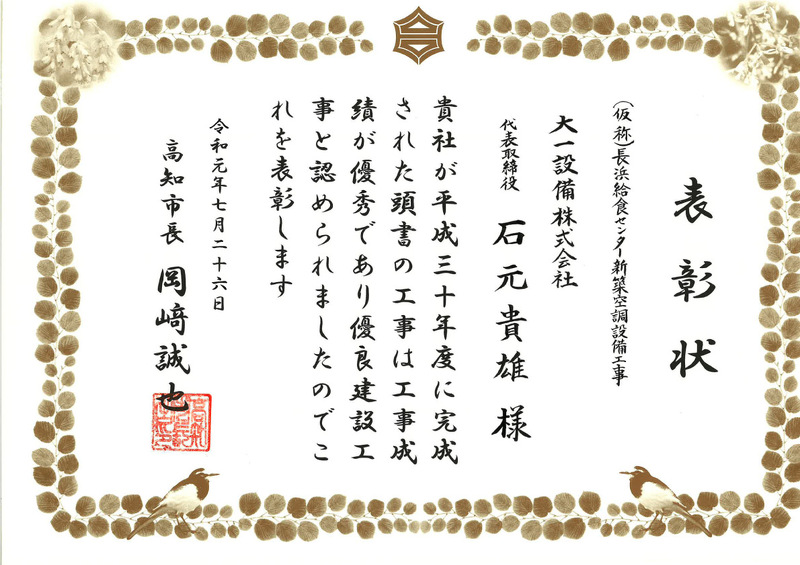 表彰状
（仮称）長浜給食センター新築空調設備工事
大一設備株式会社
代表取締役 石元貴雄 様
貴社が平成三十年度に完成
された頭書の工事は工事成
績が優秀であり優良建設工
事と認められましたのでこ
れを表彰します
令和元年七月二十六日
高知市長 岡﨑誠也